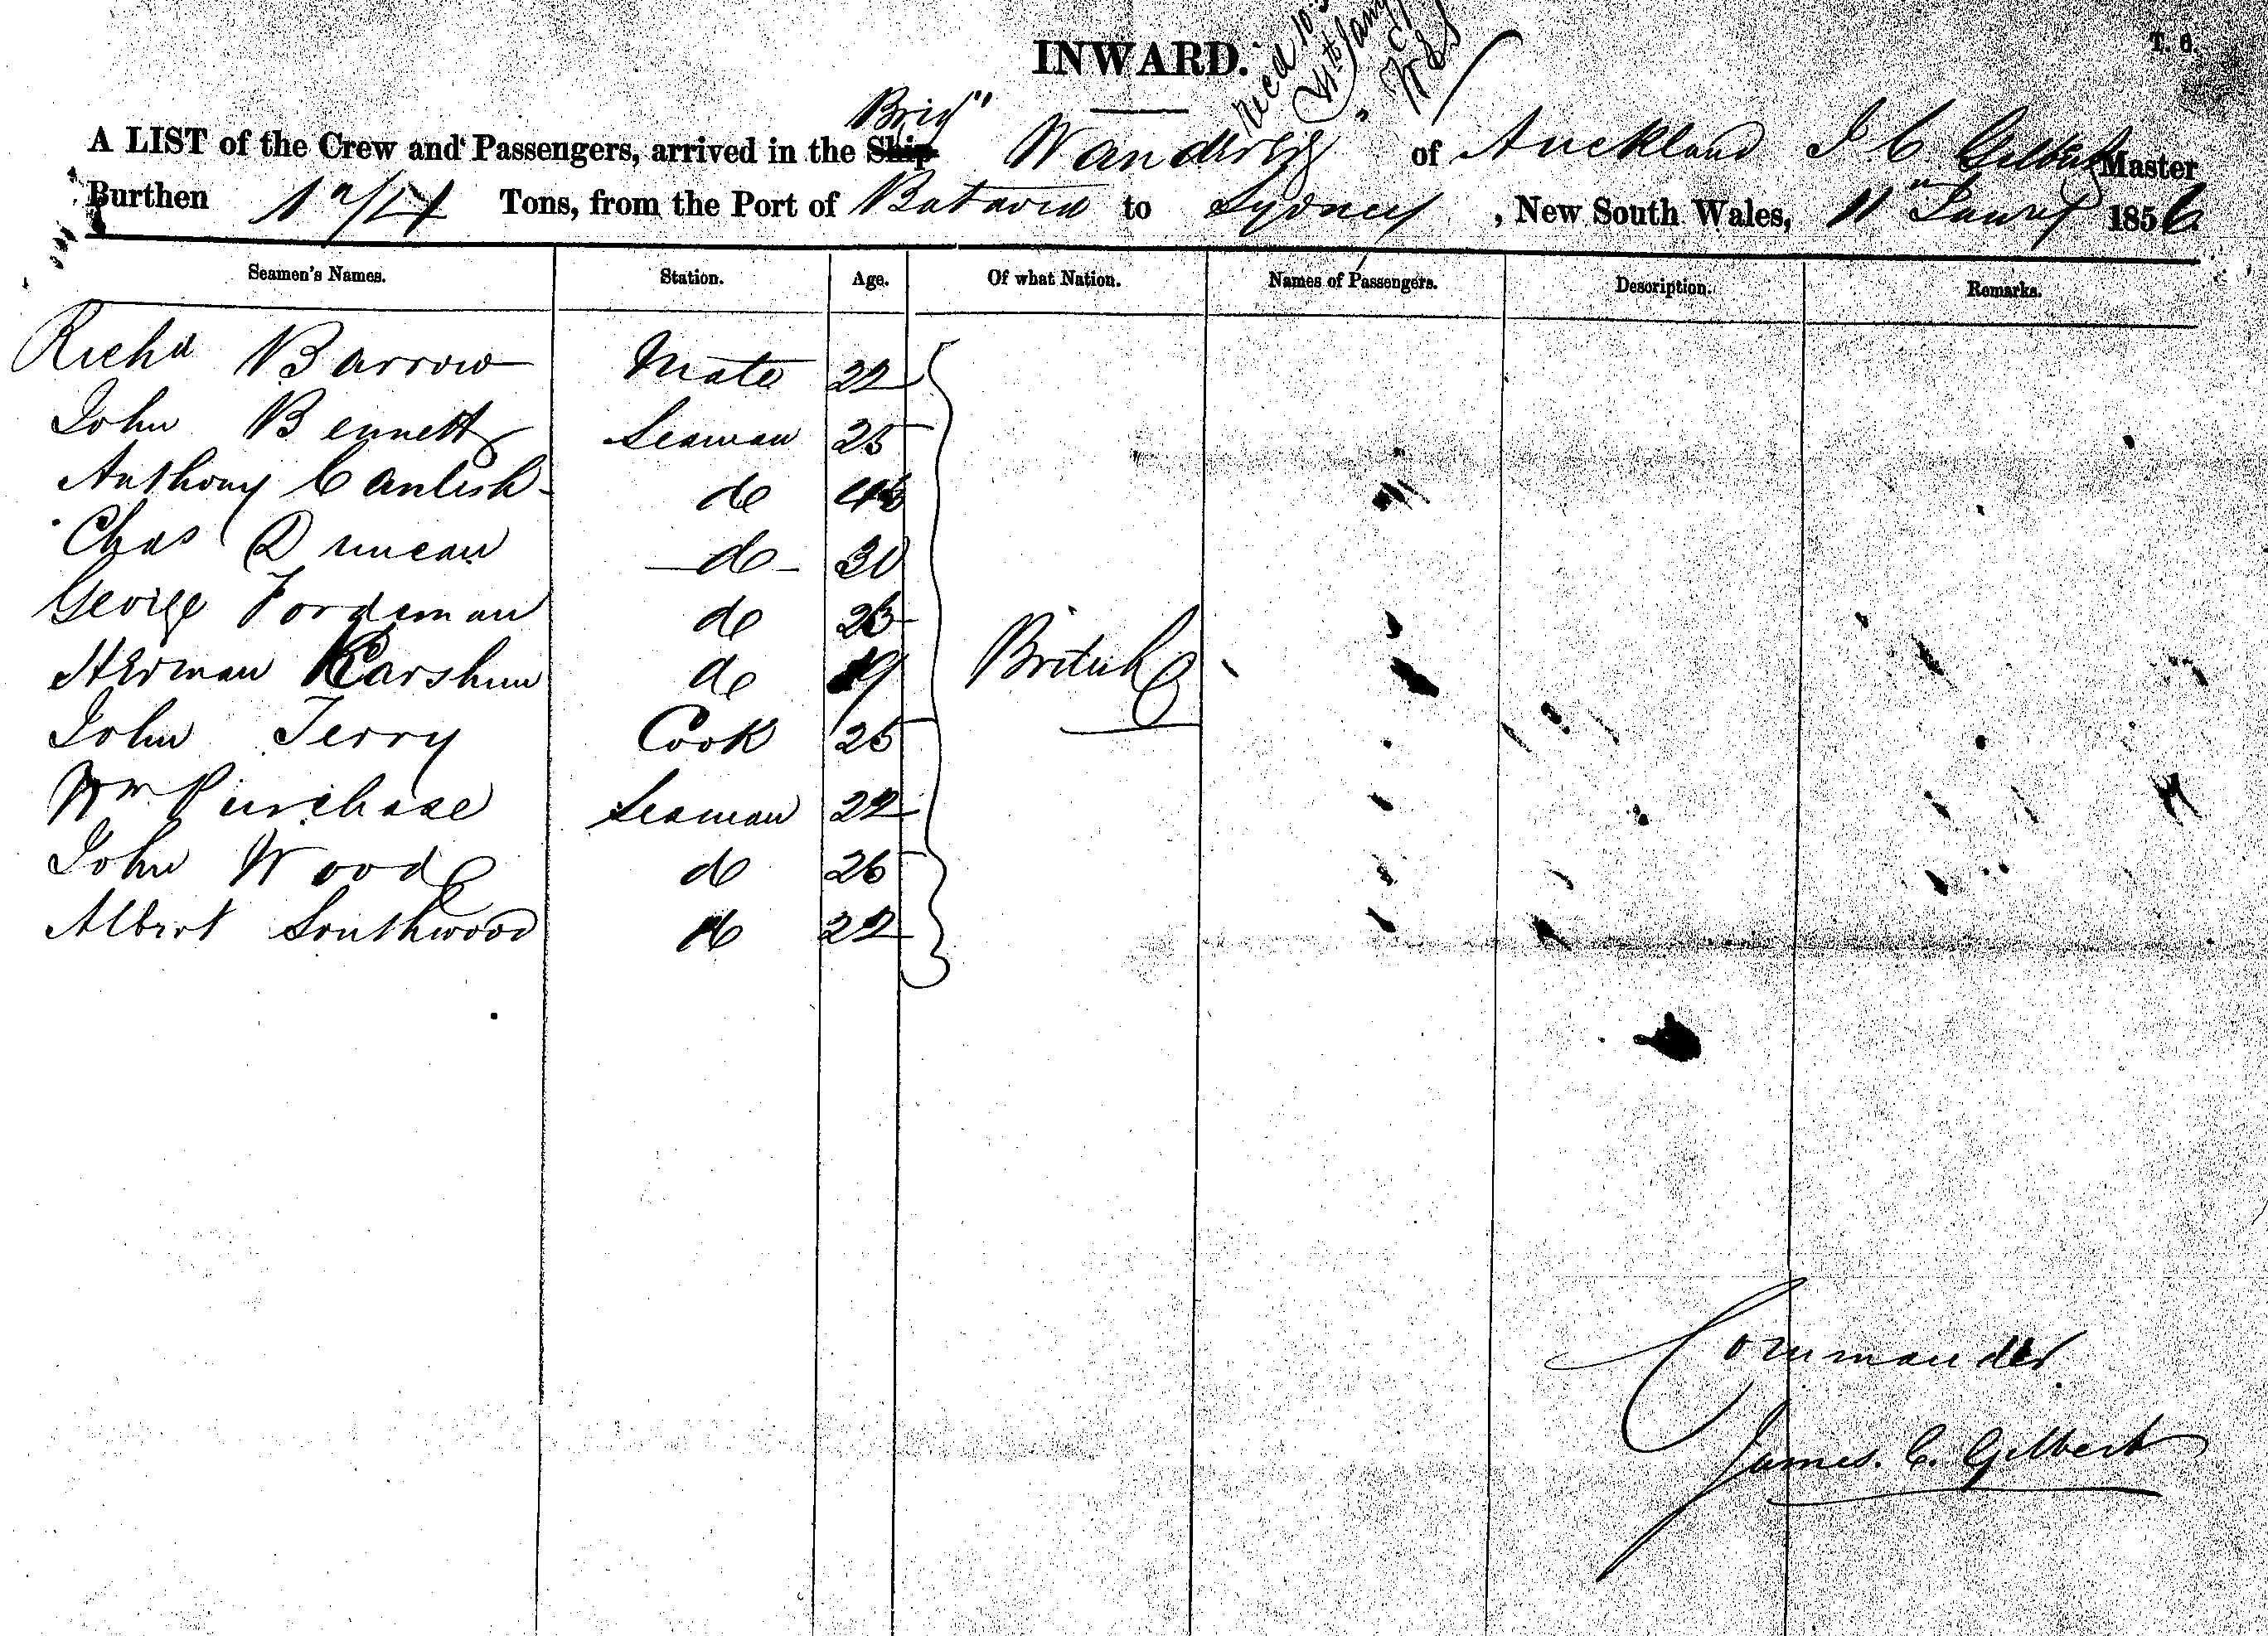 INWARD.
T. 6.
Brig"
A LIST of the Crew and Passengers, arrived in the Ship Wanderer of Auckland J C Gilbert Master
Burthen Tons, from the Port of Batavia to Sydney, New South Wales, 11th Jany 1856.
Seamen's Names. Station. Age. Of what Nation. Names of Passengers. Description. Remarks.
Richd Barrow Mate 22
John Bennett Seaman 25
Anthony do
Chas Duncan do 30
George Fordeman do
Herman Karshun do 19
John Terry Cook 25
British
Wm Purchase Seaman 22
John Wood do 26
Albert Southwood do 22
Commander
James. C. Gilbert